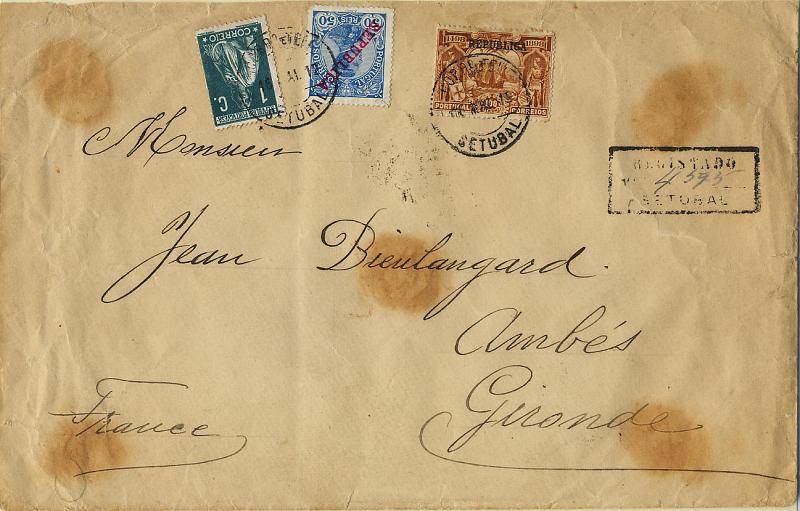 CORREIO
1 C.
50 REIS 50
PORTUGAL
REPUBLICA
1498 REPUBLICA 1898
PORTUGAL CORREIOS
SETUBAL
SETUBAL
REGISTADO
4595
SETUBAL
Monsieur
Jean Dieulangard.
Ambés
Gironde
France